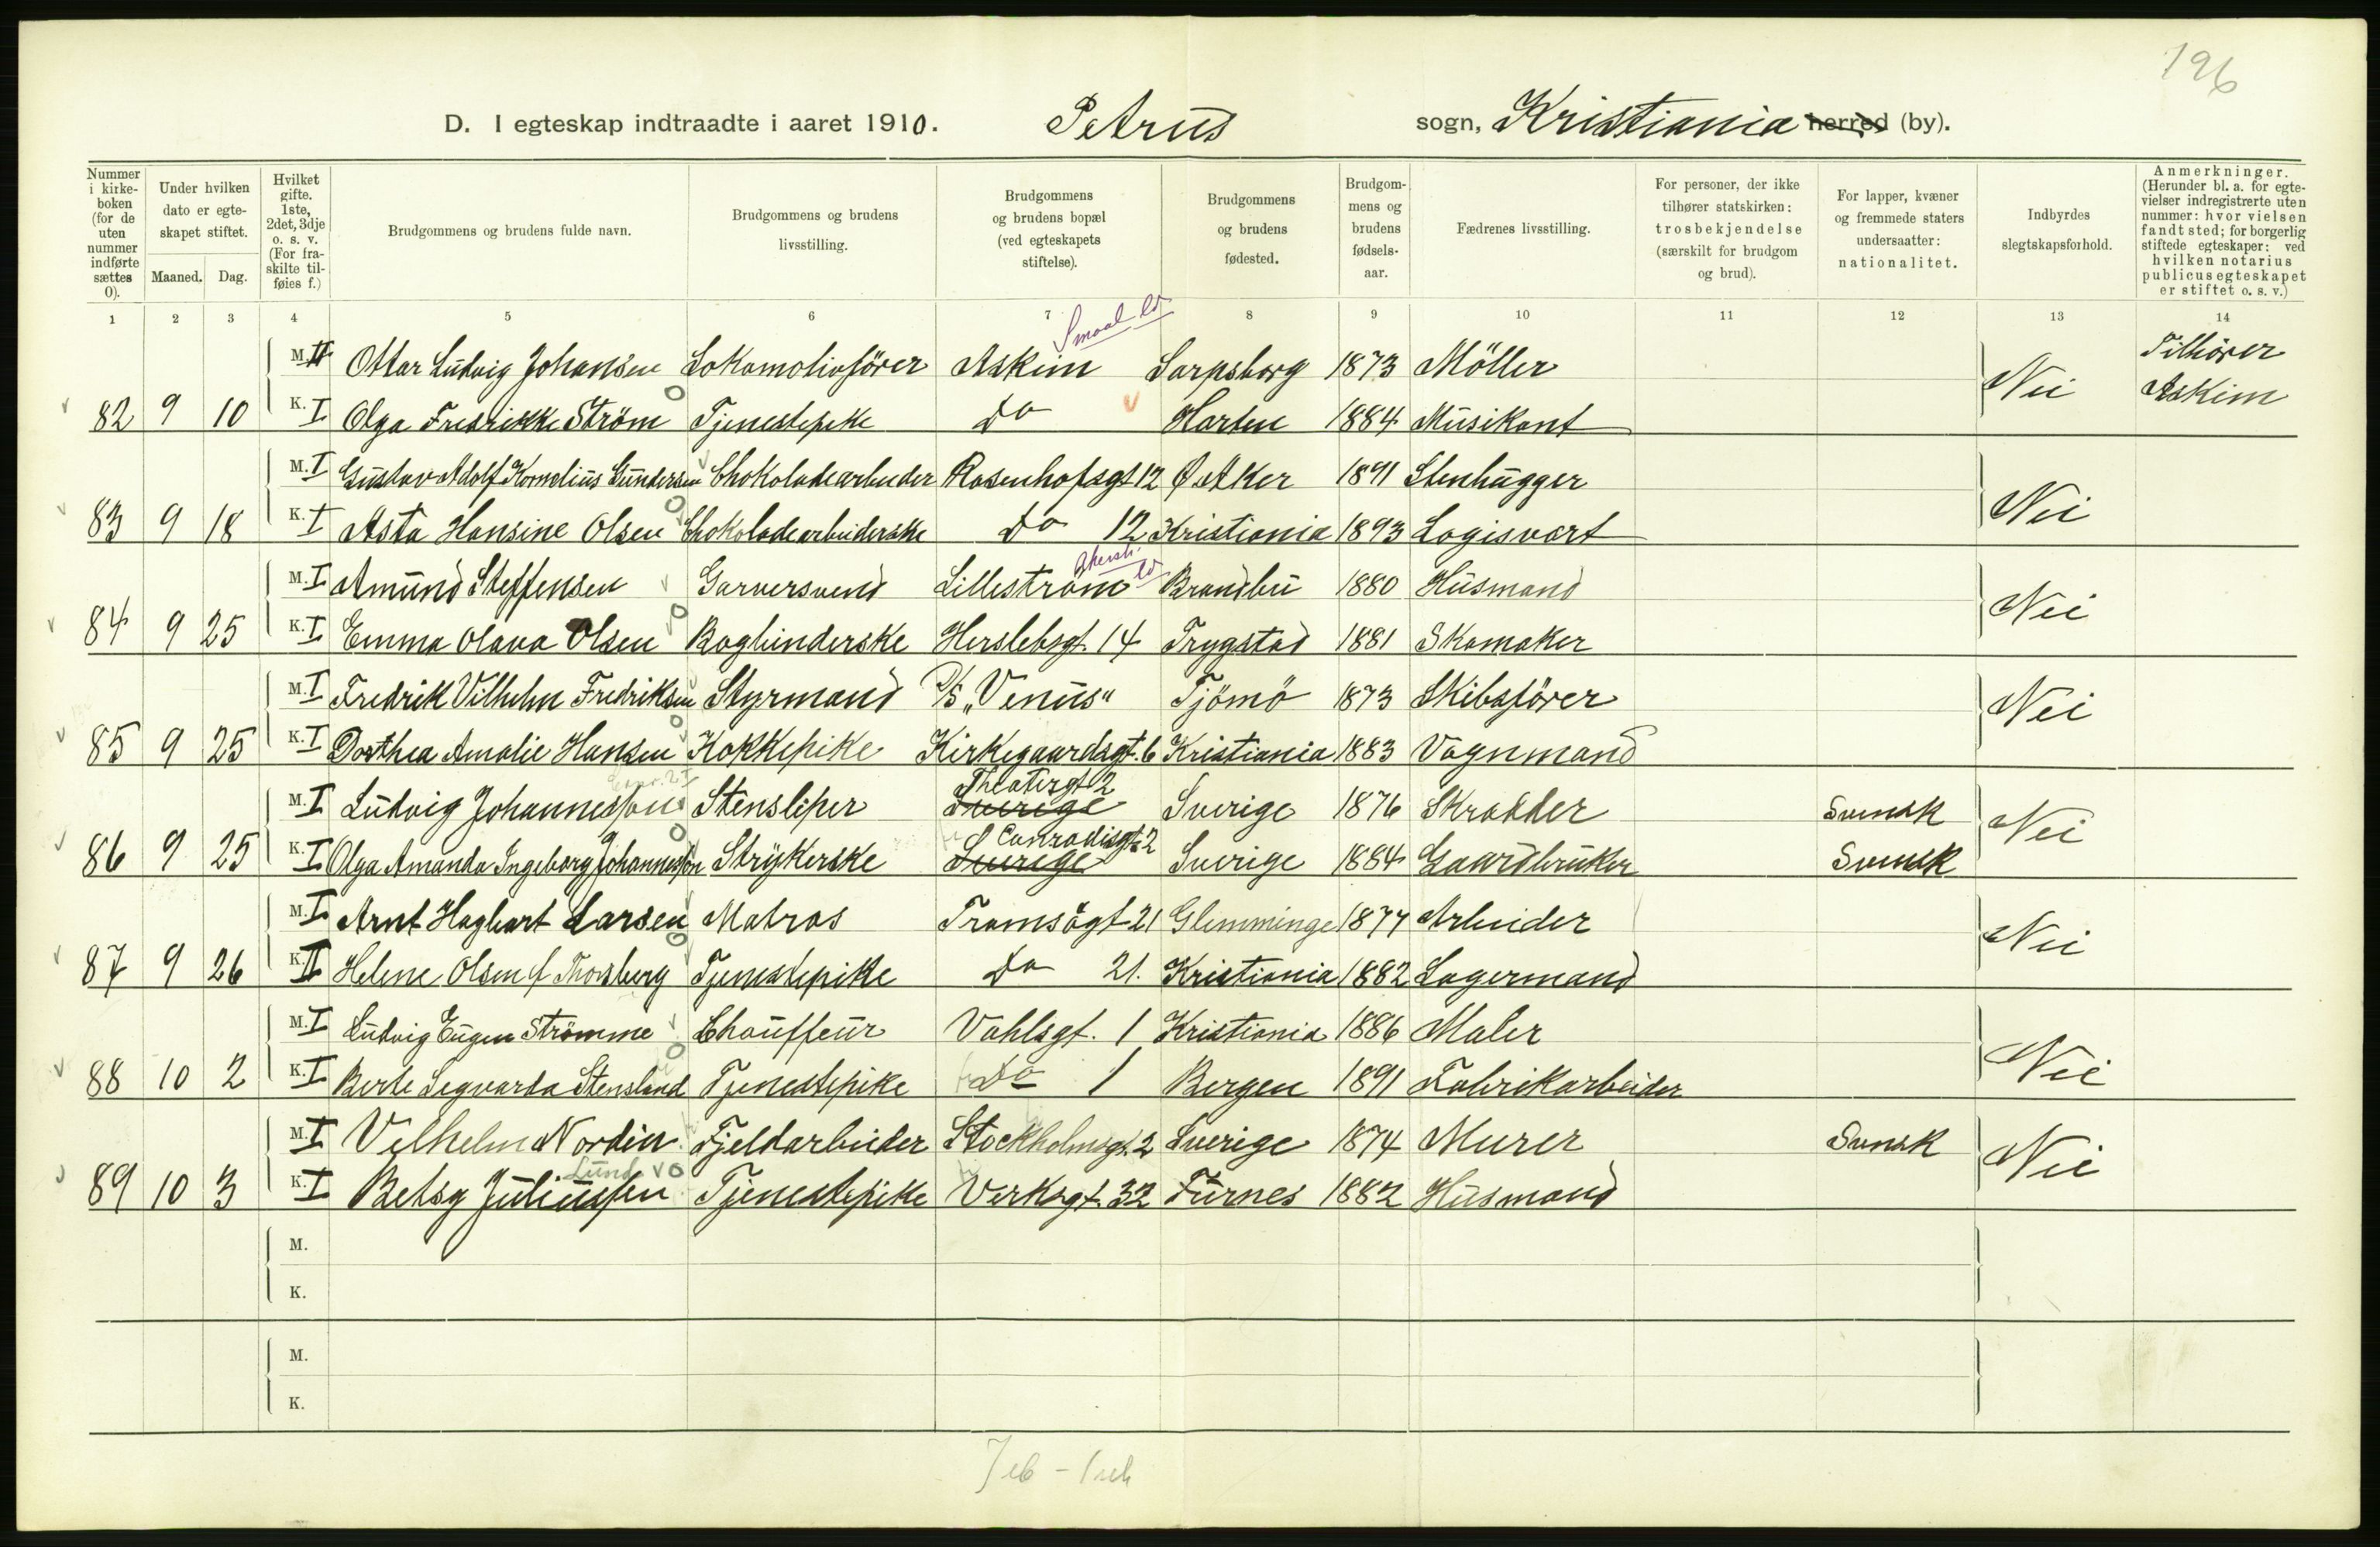 196
D. I egteskap indtraadte i aaret 1910. Petrus sogn, Kristiania herred (by).
Nummer i kirkeboken (for de uten nummer indførte sættes 0).
Under hvilken dato er egteskapet stiftet.
Maaned. Dag.
Hvilket gifte. 1ste, 2det, 3dje o. s. v. (For fraskilte tilføies f.)
Brudgommens og brudens fulde navn.
Brudgommens og brudens livsstilling.
Brudgommens og brudens bopæl (ved egteskapets stiftelse).
Brudgommens og brudens fødested.
Brudgommens og brudens fødselsaar.
Fædrenes livsstilling.
For personer, der ikke tilhører statskirken: trosbekjendelse (særskilt for brudgom og brud).
For lapper, kvæner og fremmede staters undersaatter: nationalitet.
Indbyrdes slegtskapsforhold.
Anmerkninger. (Herunder bl. a. for egtevielser indregistrerte uten nummer: hvor vielsen fandt sted; for borgerlig stiftede egteskaper: ved hvilken notarius publicus egteskapet er stiftet o. s. v.)
1 2 3 4 5 6 7 8 9 10 11 12 13 14
Smaal ld
M. II Ottar Ludvig Johansen Lokomotivförer Askim Sarpsborg 1873 Möller Nei Tilhörer Askim
82 9 10 K. I Olga Fredrikke Ström Tjenestepike do Horten 1884 Musikant
M. I Gustav Adolf Kornelius Gundersen Chokoladearbeider Rosenhofsgt 12 Ø. Aker 1891 Stenhugger Nei
83 9 18 K. I Asta Hansine Olsen Chokoladearbeiderske do 12 Kristiania 1893 Logisvært
Akersh. ld
M. I Amund Steffensen Garversvend Lilleström Brandbu 1880 Husmand Nei
84 9 25 K. I Emma Olava Olsen Bogbinderske Herslebsgt. 14 Trygstad 1881 Skomaker
M. I Fredrik Vilhelm Fredriksen Styrmand D/S „Venus" Tjömö 1873 Skibsförer Nei
85 9 25 K. I Dorthea Amalie Hansen Kokkepike Kirkegaardsgt. 6 Kristiania 1883 Vognmand
Theatergt 2
M. I Ludvig Johannesson Stensliper Sverige Sverige 1876 Skrædder Svensk Nei
Conradisgt 2
86 9 25 K. I Olga Amanda Ingeborg Johannesson Strykerske Sverige Sverige 1884 Gaardbruker Svensk
M. I Arnt Hagbart Larsen Matros Tromsögt 21 Glimminge 1877 Arbeider Nei
87 9 26 K. II Helene Olsen f Thorsberg Tjenestepike do 21. Kristiania 1882 Lagermand
M. I Ludvig Eugen Strömme Chauffeur Vahlsgt. 1 Kristiania 1886 Maler Nei
88 10 2 K. I Berte Segvarda Stensland Tjenestepike do 1 Bergen 1891 Fabrikarbeider
M. I Vilhelm Nordin Fjeldarbeider Stockholmsgt. 2 Sverige 1874 Murer Svensk Nei
Lund
89 10 3 K. I Betsy Juliussen Tjenestepike Verksgt. 32 Furnes 1882 Husmand
M.
K.
M.
K.